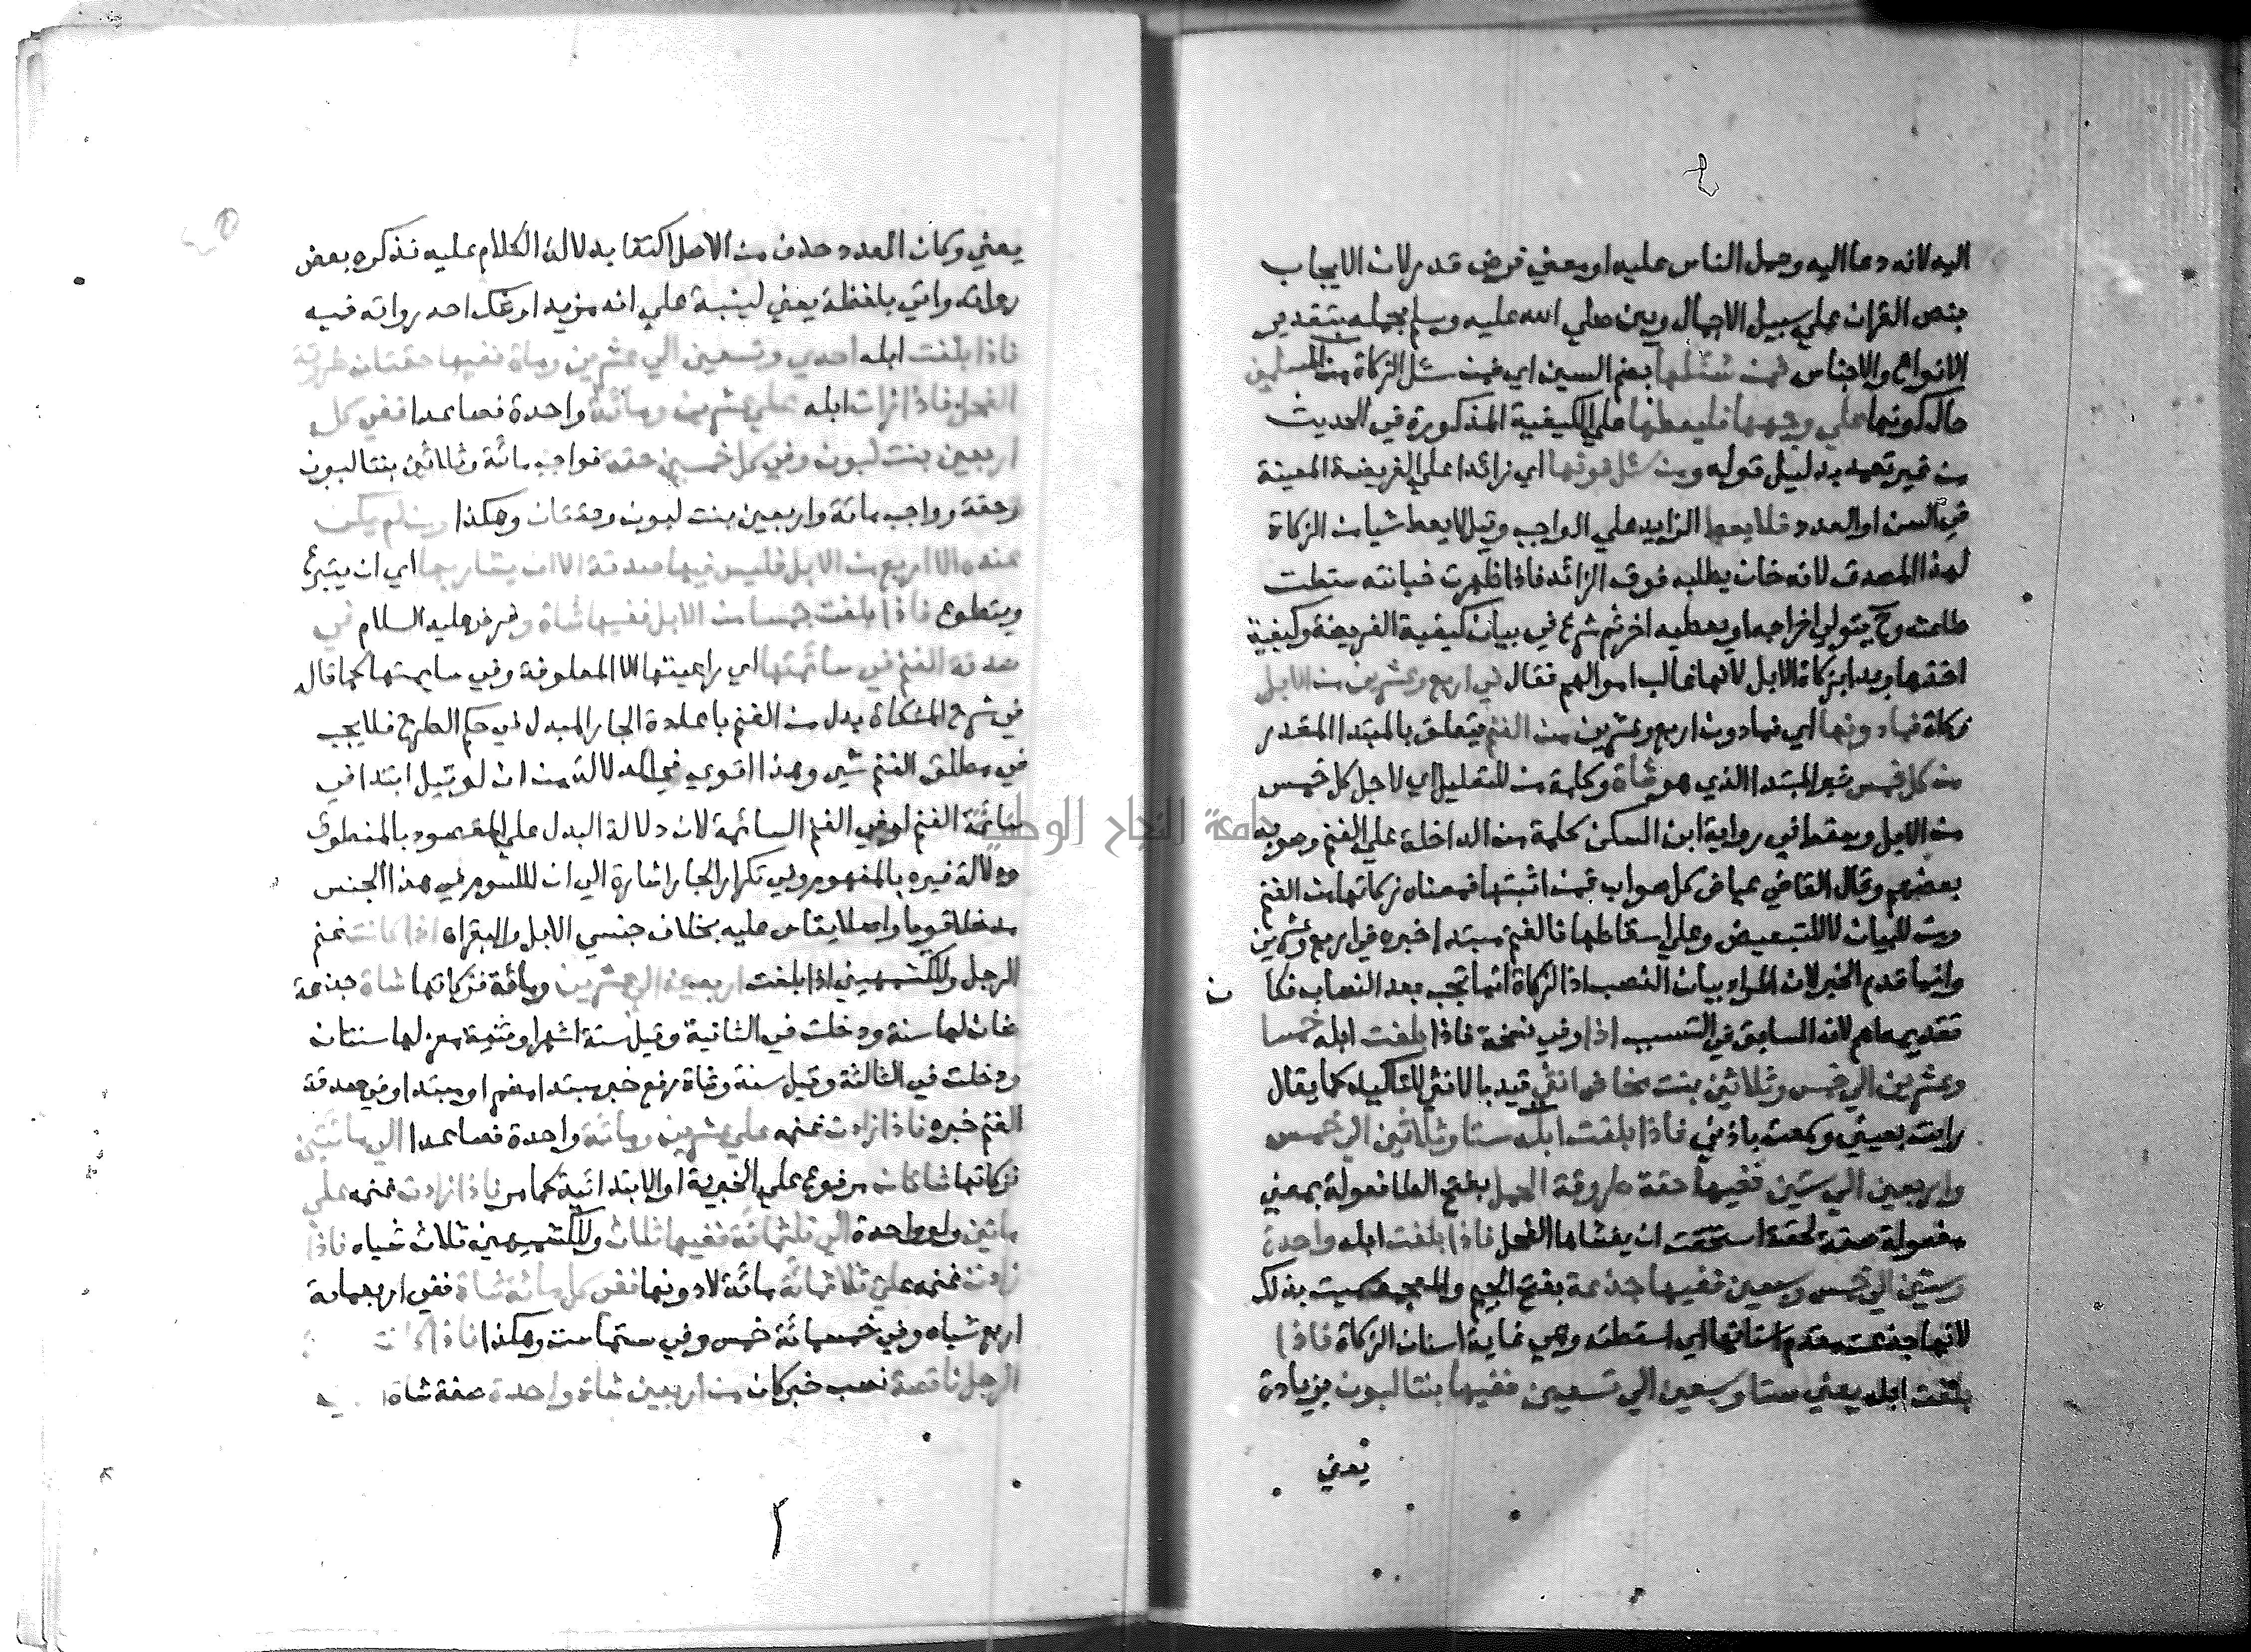 اليه لانه دعا اليه وحمل الناس عليه او يعني فرض قدر لان الايجاب
بنص القران علي سبيل الاجمال وبين صلي الله عليه وسلم مجمله بتقدير
الانواع والاجناس فمن سئلها بضم السين اي فمن سئل الزكاة من المسلمين
حال كونها علي وجهها فليعطها علي الكيفية المذكورة في الحديث
من غير تعد بدليل قوله ومن سئل فوقها اي زائدا علي الفريضة المعينة
في السن او العدد فلا يعط الزايد علي الواجب وقيل لا يعط شيا من الزكاة
لهذا المصدق لانه خان بطلبه فوق الزائد فاذا ظهرت خيانته سقطت
طاعته وح يتولي اخراجه او يعطيه اخر ثم شرع في بيان كيفية الفريضة وكيفية
اخذها وبدا بزكاة الابل لانها غالب اموالهم فقال في اربع وعشرين من الابل
زكاة فما دونها اي فما دون اربع وعشرين من الغنم يتعلق بالمبتدا المقدر
من كل خمس خبر المبتدا الذي هو شاة وكلمة من للتعليل اي لاجل كل خمس
من الابل وسقط في رواية ابن السكن كلمة من الداخلة علي الغنم وصوبه
بعضهم وقال القاضي عياض كل صواب فمن اثبتها فمعناه زكاتها من الغنم
ومن للبيان لا للتبعيض وعلي اسقاطها فالغنم مبتدا خبره في اربع وعشرين
وانما قدم الخبر لان المراد بيان النصب اذ الزكاة انما تجب بعد النصاب فكان
تقديمه اهم لانه السابق في التسبب اذا وفي نسخة فاذا بلغت ابله خمسا
وعشرين الي خمس وثلاثين بنت مخاض انثي قيد بالانثي للتاكيد كما يقال
رايت بعيني وسمعت باذني فاذا بلغت ابله ستا وثلاثين الي خمس
واربعين الي ستين ففيها حقة طروقة الجمل بفتح الطا فعولة بمعني
مفعولة صفة لحقة استحقت ان يغشاها الفحل فاذا بلغت ابله واحدة
وستين الي خمس وسبعين ففيها جذعة بفتح الجيم والمعجمة سميت بذلك
لانها جذعت مقدم اسنانها اي اسقطته وهي غاية اسنان الزكاة فاذا
بلغت ابله يعني ستا وسبعين الي تسعين ففيها بنتا لبون بزيادة
يعني
يعني وكان العدد حذف من الاصل اكتفا بدلالة الكلام عليه فذكره بعض
رواته واتي بلفظة يعني لينبة علي انه مزيد او شك احد رواته فيه
فاذا بلغت ابله احدي وتسعين الي عشرين وماة ففيها حقتان طروقة
الفحل فاذا زات ابله علي عشرين ومائة واحدة فصاعدا ففي كل
اربعين بنت لبون وفي كل خمسين حقة فواجب مائة وثلاثين بنتا لبون
وحقة وواجب مائة واربعين بنت لبون وحقتان وهكذا ومن لم يكن
عنده الا اربع من الابل فليس فيها صدقة الا ان يشا ربها اي ان يتبرع
ويتطوع فاذا بلغت خمسا من الابل ففيها شاة وفرض عليه السلام في
صدقة الغنم في سائمتها اي راعيتها لا المعلوفة وفي سايمتها كما قال
في شرح المشكاة بدل من الغنم باعادة الجار المبدل في حكم الطرح فلا يجب
في مطلق الغنم شي وهذا اقوي في الدلالة من ان لو قيل ابتدا في
سائمة الغنم او في الغنم السائمة لان دلالة البدل علي المقصود بالمنطوق
ودلالة غيره بالمفهوم وفي تكرار الجار اشارة الي ان للسوم في هذا الجنس
مدخلا قويا واصلا يقاس عليه بخلاف جنسي الابل والبقر اه اذا كانت غنم
الرجل وللكشميهني اذا بلغت اربعين الي عشرين ومائة فزكاتها شاة جذعة
ضان لها سنة ودخلت في الثانية وقيل ستة اشهر او ثنية معز لها سنتان
ودخلت في الثالثة وقيل سنة وشاة رفع خبر مبتدا مضمر او مبتدا وفي صدقة
الغنم خبره فاذا زادت غنمه علي عشرين ومائة واحدة فصاعدا الي مائتين
فزكاتها شاتان مرفوع علي الخبرية او الابتدائية كما مر فاذا زادت غنمه علي
مائتين ولو واحدة الي ثلثمائة ففيها ثلاث وللكشميهني ثلاث شياه فاذا
زادت غنمه علي ثلاثمائة مائة لا دونها ففي كل مائة شاة ففي اربعماية
اربع شياه وفي خمسمائة خمس وفي ستماية ست وهكذا فاذا كانت
الرجل ناقصة نصب خبر كان من اربعين شاة واحدة صفة شاة